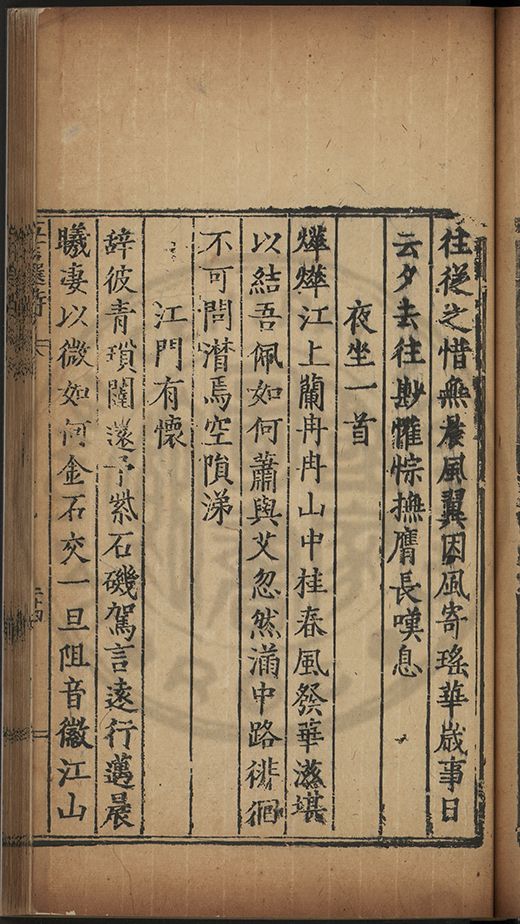 往從之惜無晨風翼因風寄瑤華歲事日
云夕去往尠懽悰撫膺長嘆息
夜坐一首
燁燁江上蘭冉冉山中桂春風發華滋堪
以結吾佩如何蕭與艾忽然滿中路徘徊
不可問潸焉空隕涕
江門有懷
辞彼青瑣闥還予紫石磯駕言遠行邁晨
曦凄以微如何金石交一旦阻音徽江山